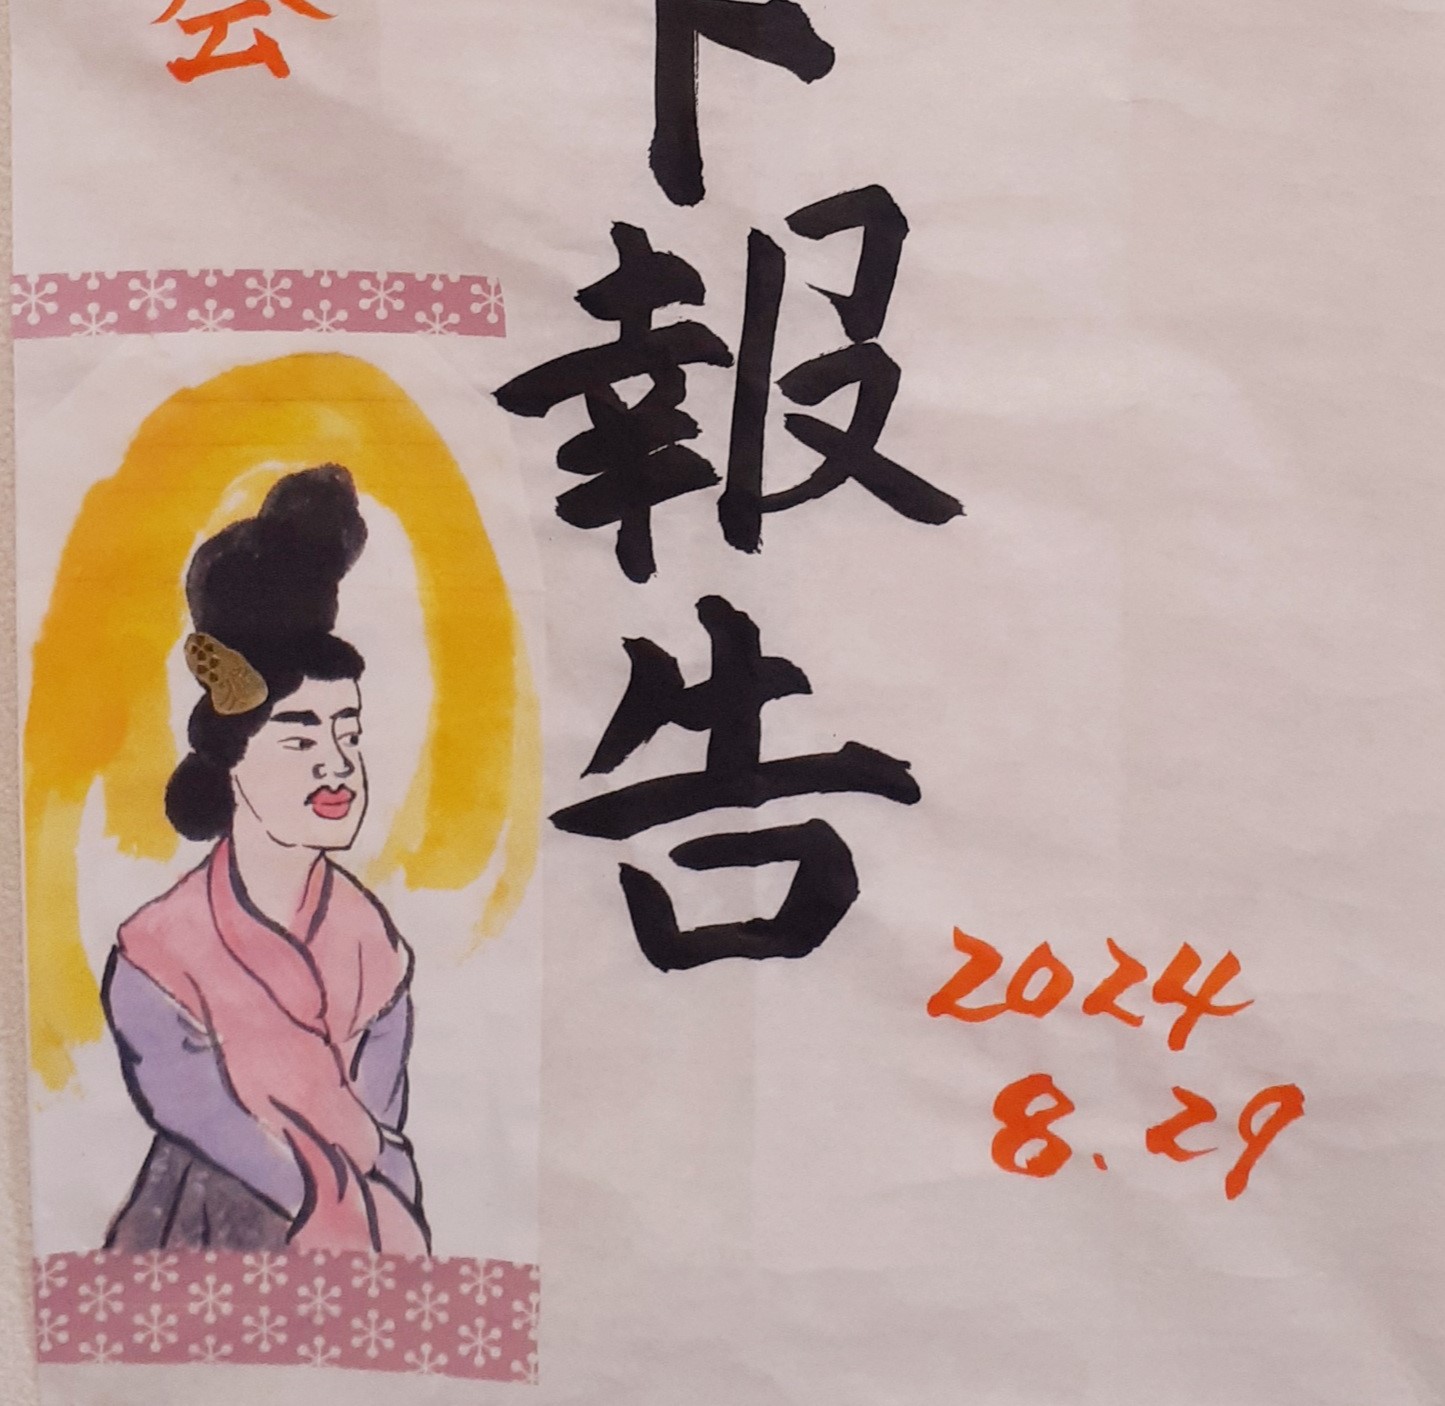 ト報告
会
2024
8.29